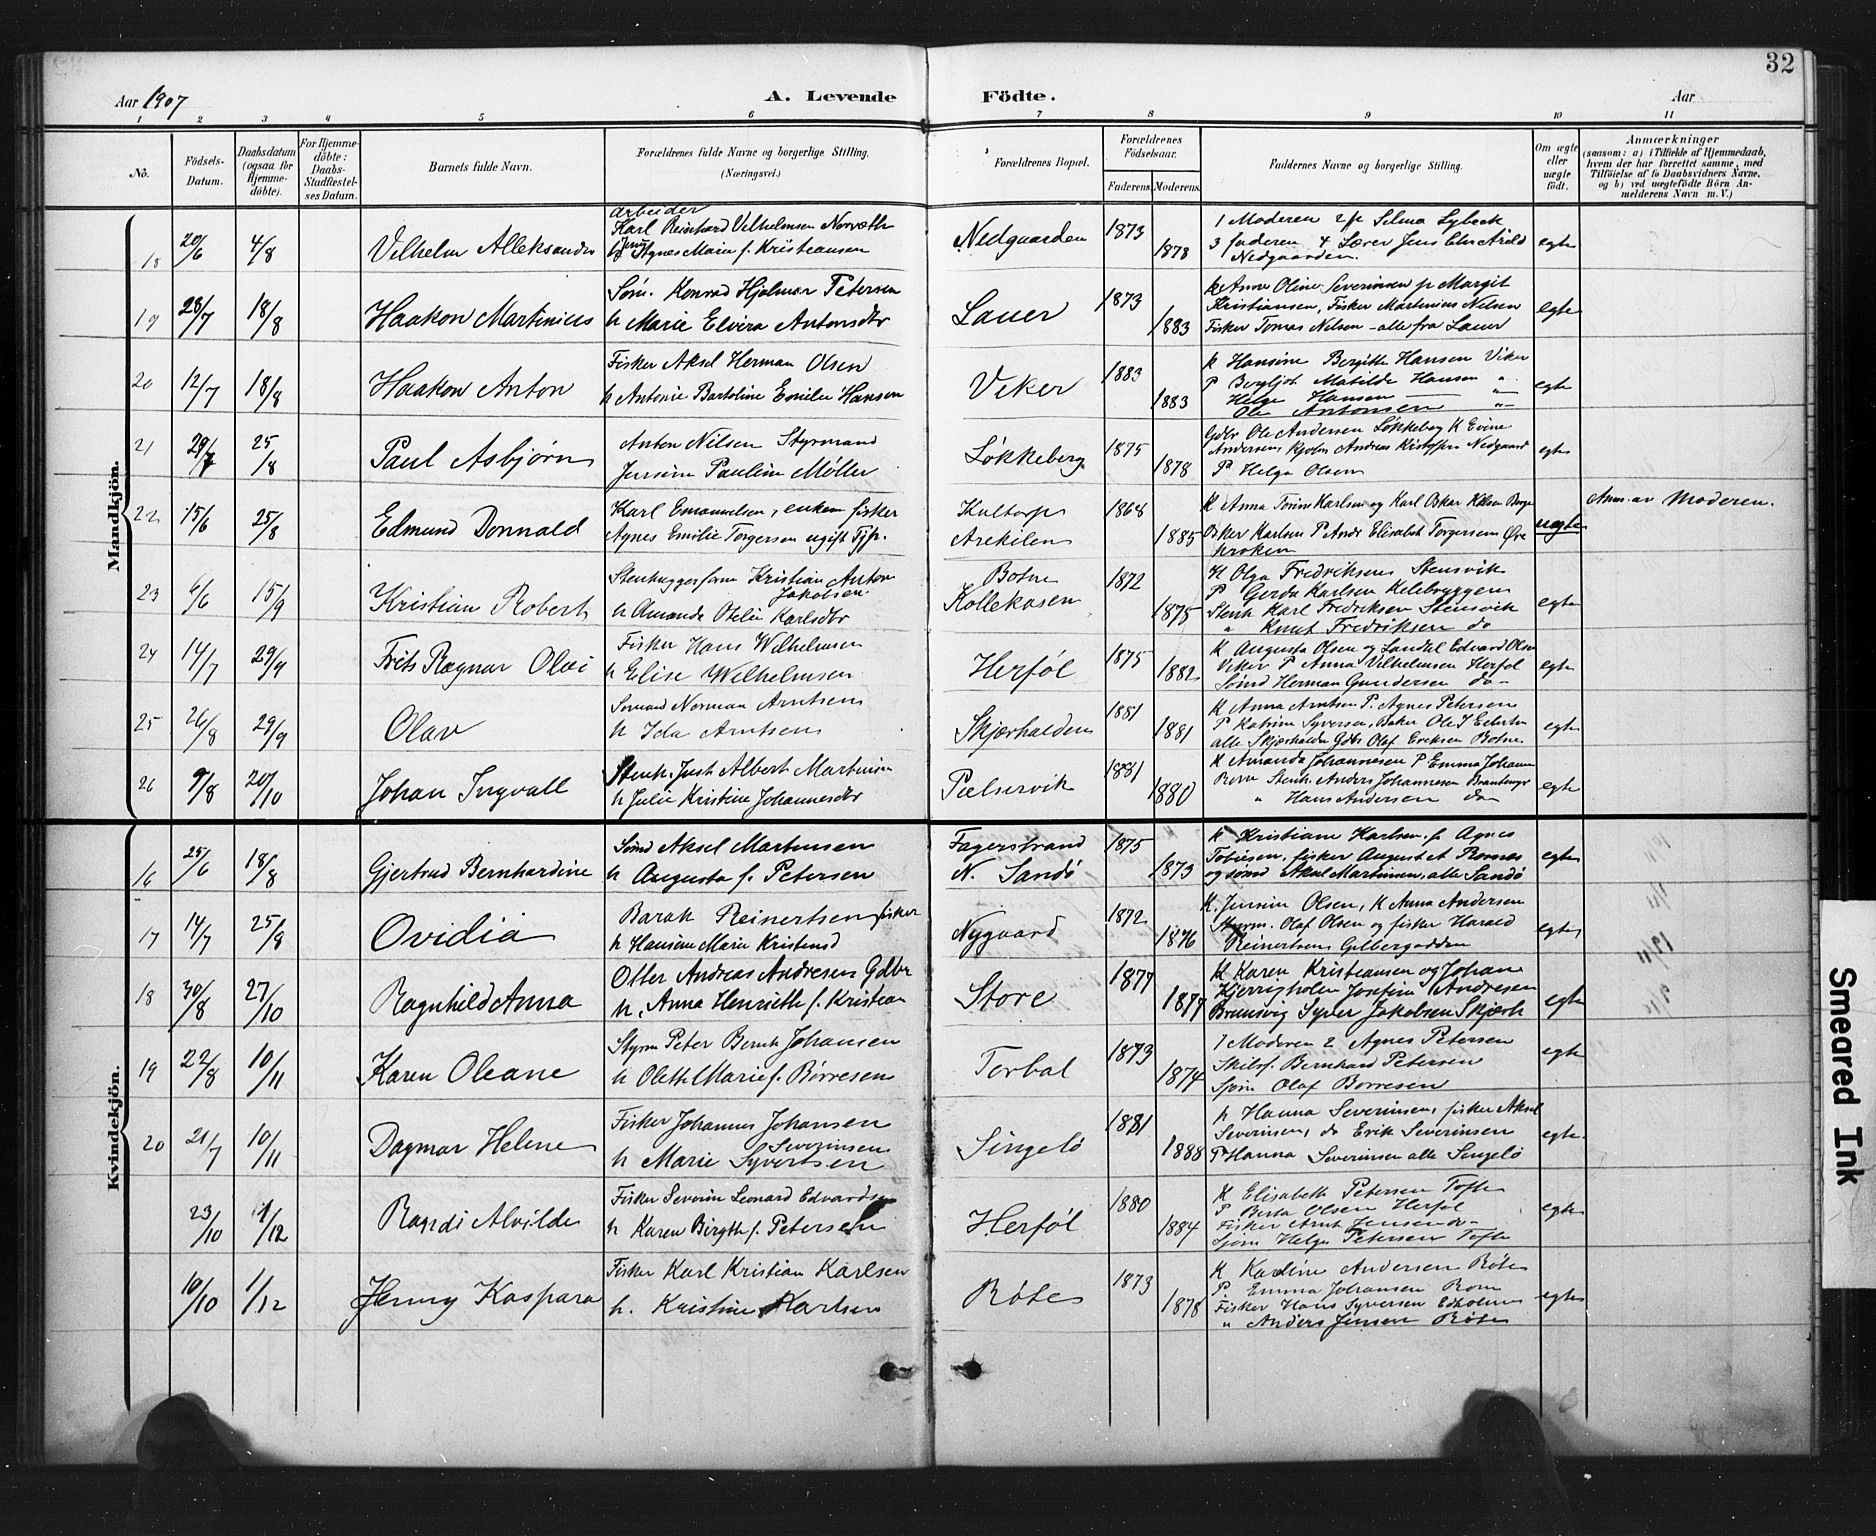 32
Aar 1907
A. Levende Födte.
Aar
1 2 3 4 5 6 7 8 9 10 11
No.
Födsels-Datum.
Daabsdatum (ogsaa for Hjemme-döbte).
For Hjemme-döbte: Daabs-Stadfæstel-ses Datum.
Barnets fulde Navn.
Forældrenes fulde Navne og borgerlige Stilling.
(Næringsvei.)
Forældrenes Bopæl.
Forældrenes Födselsaar.
Faderens. Moderens.
Faddernes Navne og borgerlige Stilling.
Om ægte eller uægte födt.
Anmærkninger
(saasom: a) i Tilfælde af Hjemmedaab, hvem der har forrettet samme, med Tilföielse af to Daabsvidners Navne, og b) ved uægtefödte Börn An-melderens Navn m. V.)
Mandkjön.
18 20/6 4/8 Vilhelm Alleksander
Arbeider
Karl Reinhard Vilhelmsen
Agnes Marie f. Kristiansen
Nedgaarden 1873 1878
1 Moderen 2 p Selma Lybeck
3 faderen 4 Lærer Jens Chr
Nedgaarden.
egte
19 28/7 18/8 Haakon Martinius
Søm. Konrad Hjalmar Petersen
h Marie Elvira Antonsdtr
Lauer 1873 1883
k Anne Oline Severinsen p Margit
Kristiansen, Fisker Martinius Nilsen
Fisker Tomas Nilsen - alle fra Lauer
egte
20 12/7 18/8 Haakon Anton
Fisker Aksel Herman Olsen
h Antonie Bartoline Emilie Hansen
Viker 1883 1883
k Hansine Bergitte Hansen Viker
P Bergljot Matilde Hansen "
Helge Hansen "
Ole Antonsen "
egte
21 29/7 25/8 Paul Asbjørn
Anton Nilsen Styrmand
Jensine Pauline Møller
Løkkeberg 1875 1878
Gdbr Ole Andersen Løkkeberg K Evine
Andersens Andreas Nedgaard
P Helga Olsen
egte
22 15/6 25/8 Edmund Donnald
Karl Emanuelsen, enkem fisker
Agnes Emilie Torgersen ugift Tjp.
Arekilen 1868 1885
K Anna Karlsen og Karl Oskar
Osker Karlsen P Elisabet Torgersen Øve
kroken
uegte
Anm. av Moderen.
23 6/6 15/9 Kristian Robert
Stenhuggerform Kristian Anton
Jakobsen
h Amanda Otelie Karlsdtr
Botne
Kollekasen 1872 1875
K Olga Fredriksen Stensvik
P Gerda Karlsen
Stenh Karl Fredriksen Stensvik
" Knut Fredriksen do
egte
24 14/7 29/9 Frits Ragnar Olai
Fisker Hans Wilhelmsen
h Elise Wilhelmsen
Herføl 1875 1882
K Augusta Olsen og Edvard Olsen
Viker P Anna Vilhelmsen Herføl
Sømd Herman Gundersen do-
egte
25 26/8 29/9 Olav
Sømand Norman Arntsen
h Ida Arntsen
Skjærhalden 1881 1881
K Anna Arntsen P. Agnes Petersen
P Katrine Syversen, Ole
alle Skjærhalden Gdbr Olaf Eriksen Botne
egte
26 9/8 20/10 Johan Ingvall
Stenh. Just Albert Martinsen
h Julie Kristine Johannesdtr
Pulservik 1881 1880
K Amanda Johannesen P Emma Johann
Rom Stenh. Anders Johannesen
" Hans Andersen do
egte
Kvindekjön.
16 25/6 18/8 Gjertrud Bernhardine
Sømd Aksel Martinsen
h Augusta f. Petersen
Fagerstrand
N. Sandø 1875 1873
k Kristiane Karlsen. p Agnes
Tobiesen, fisker August
og sømd Aksel Martinsen, alle Sandø
egte
17 14/7 25/8 Ovidia
Barak Reinertsen fisker
h Hansine Marie
Nygaard 1872 1876
K. Jensine Olsen, K Anna Andersen
Styrm. Olaf Olsen og fisker Harald
Reinertsen
egte
18 30/8 27/10 Ragnhild Anna
Otter Andreas Andresen Gdbr
h. Anna Henriette f. Kristian
Store 1877 1877
K Karen Kristiansen og Johan
Josefine Andresen
Syver Jakobsen Skjærh
egte
19 22/8 10/11 Karen Oleane
Styrm Peter Bernt Johansen
h Olette Marie f. Børresen
Torbal 1873 1874
1 Moderen 2 Agnes Petersen
Skibsf. Bernhard Petersen
Sjøm Olaf Borresen
egte
20 21/7 10/11 Dagmar Helene
Fisker Johannes Johansen
Severinsen
h Marie Syvertsen
Singelø 1881 1888
h Hanna Severinsen, fisker Aksel
Severinsen, do Erik Severinsen
P Hanna Severinsen alle Singelø
egte
23/10 1/12 Ragndi Alvilde
Fisker Severin Leonard Edvardsen
h Karen Birgitte f. Petersen
Herføl 1880 1884
K Elisabeth Petersen Tofte
P Berta Olsen Herføl
Fisker Arnt Jensen do-
Sjøm Helge Petersen Tofte
egte
10/10 1/12 Jenny Kaspara
Fisker Karl Kristian Karlsen
h. Kristine Karlsen
Røte 1873 1878
K Karline Andersen Røte
P. Emma Johansen Rom
Fisker Hans Syversen
" Anders Jensen Røte
egte
Smeared Ink